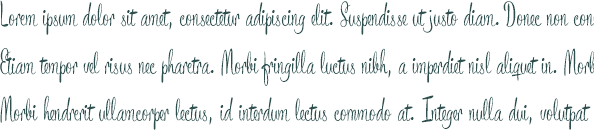 Lorem ipsum dolor sit amet, consectetur adipiscing elit. Suspendisse ut justo diam. Donec non con
Etiam tempor vel risus nec pharetra. Morbi fringilla luctus nibh, a imperdiet nisl aliquet in. Morb
Morbi hendrerit ullamcorper lectus, id interdum lectus commodo at. Integer nulla dui, volutpat